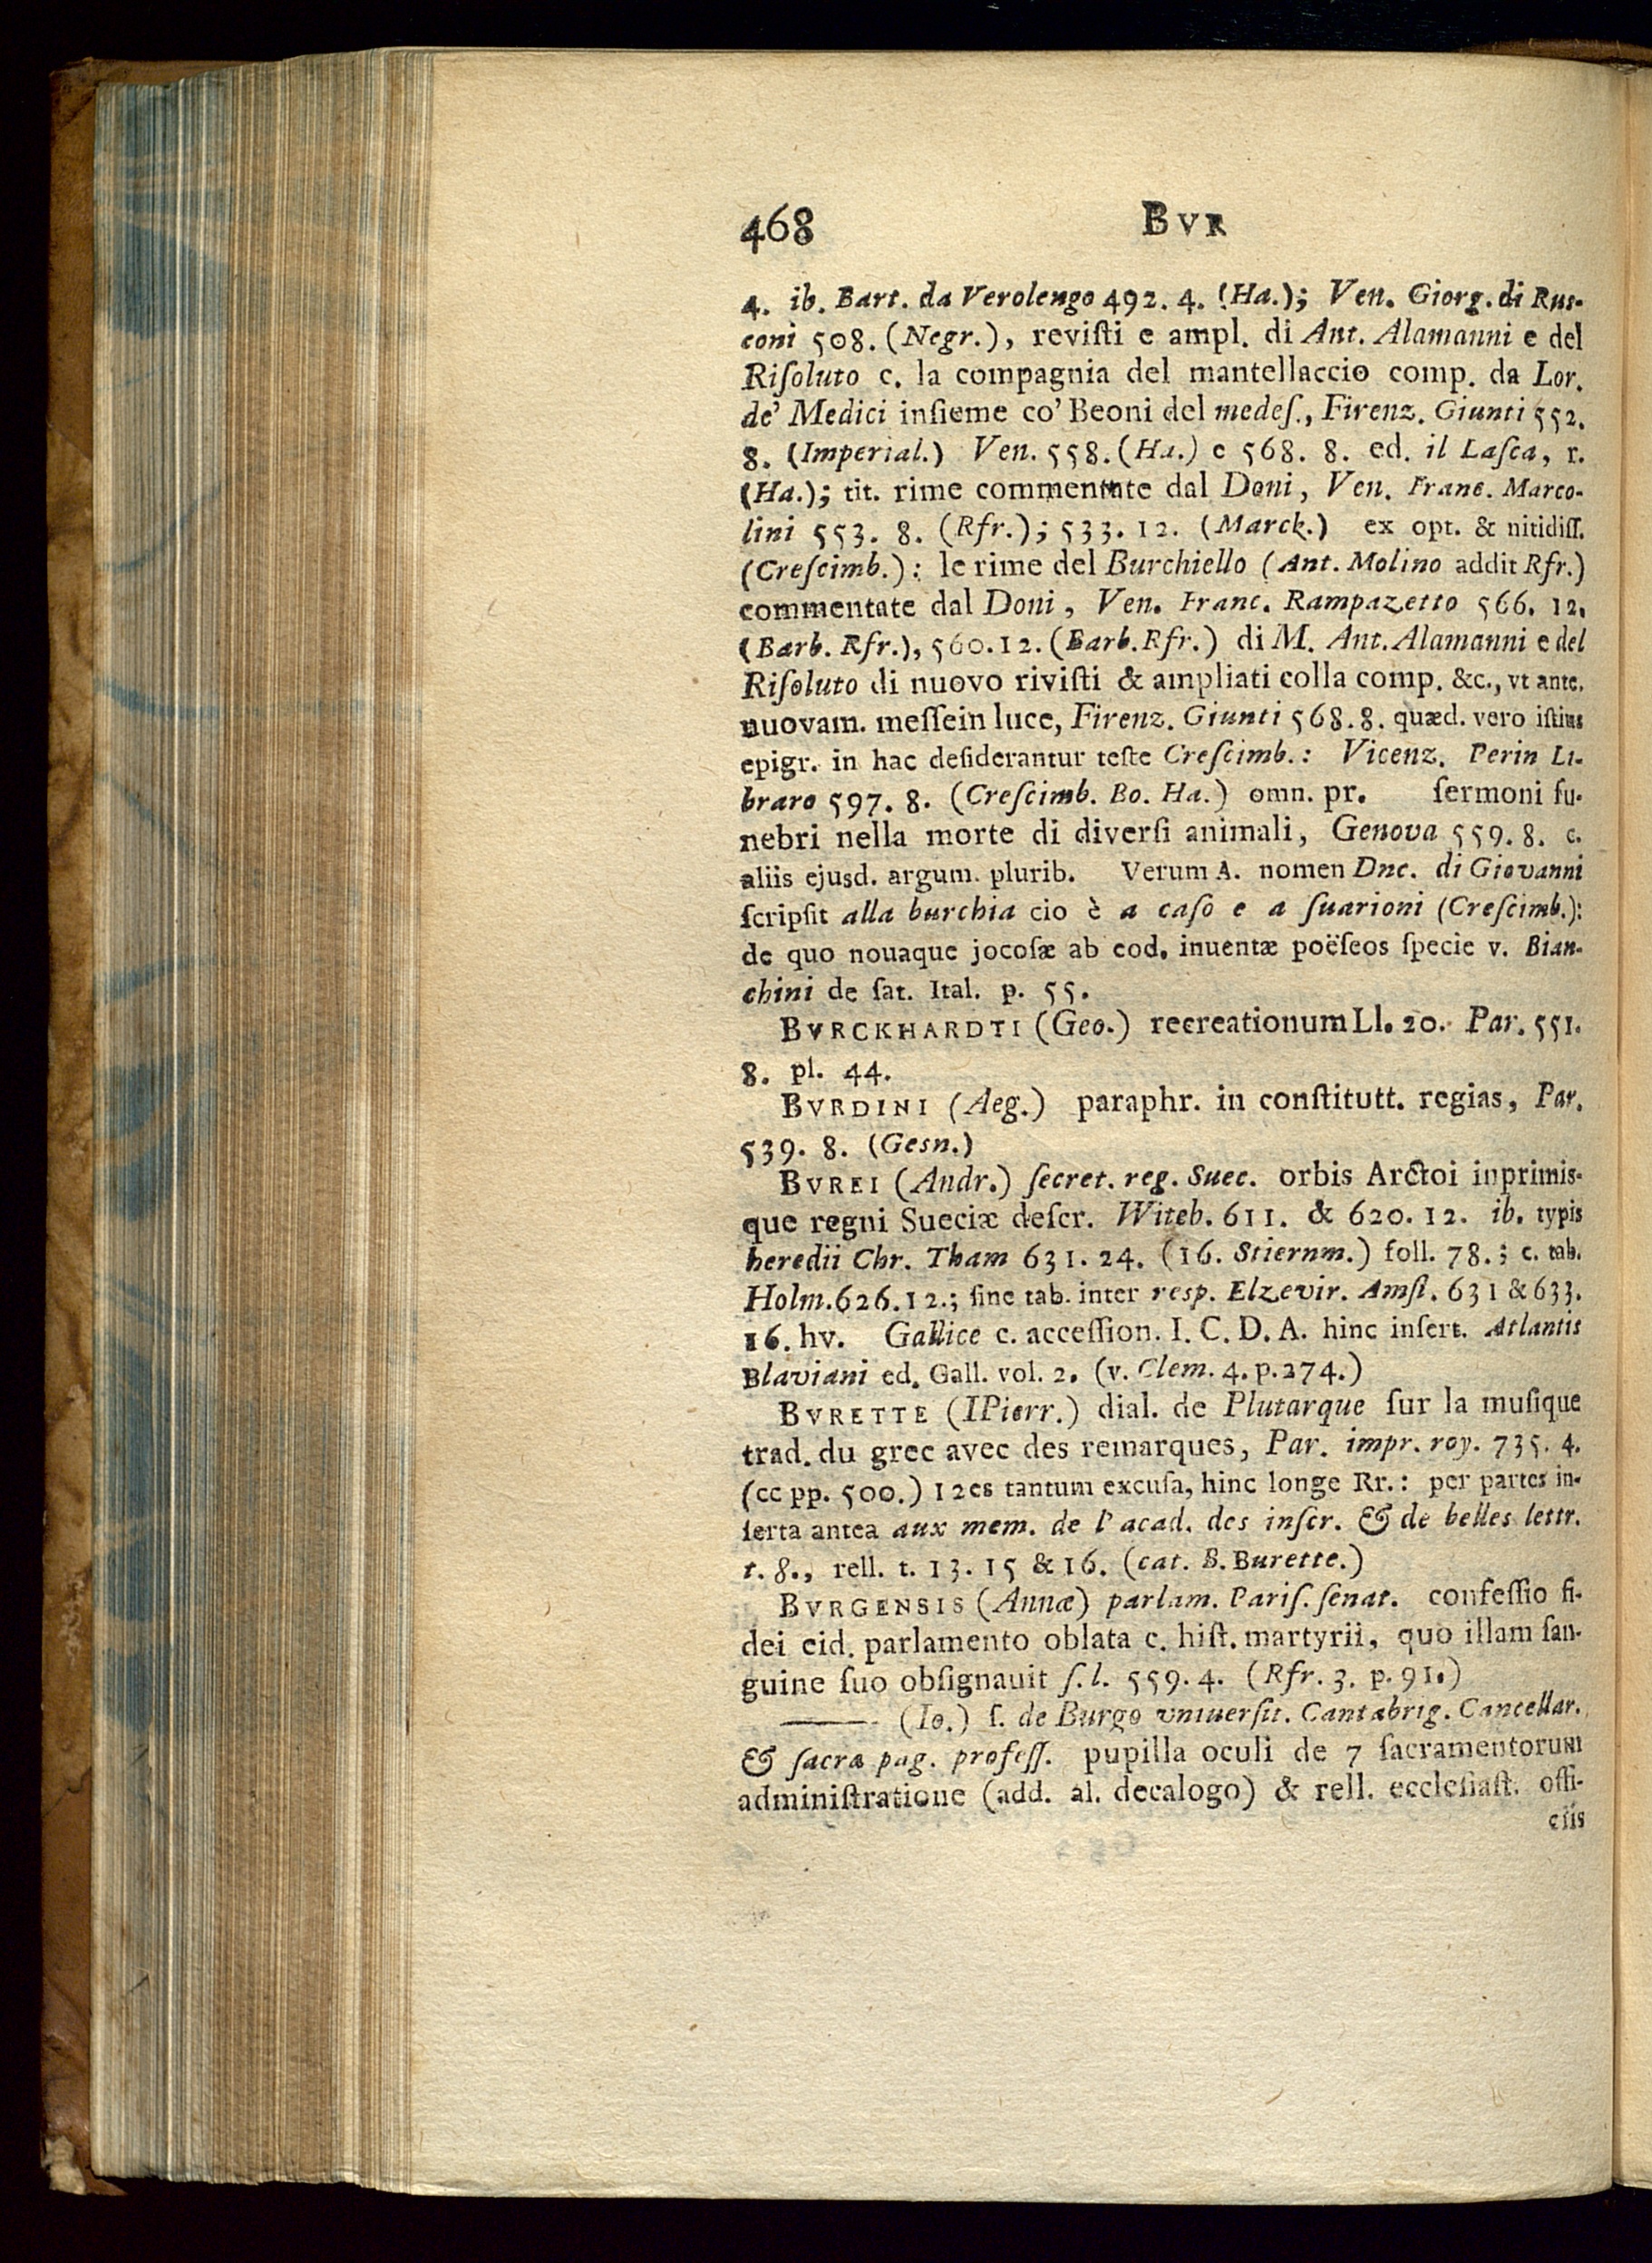 468 BVR
4. ib. Bart. da Verolengo 492. 4. (Ha.); Ven. Giorg. di Rus-
coni 508. (Negr.), reviſti e ampl. di Ant. Alamanni e del
Riſoluto c. la compagnia del mantellaccio comp. da Lor.
de' Medici inſieme co' Beoni del medeſ., Firenz. Giunti 552.
8. (Imperial.) Ven. 558. (Ha.) e 568. 8. ed. il Laſca, r.
(Ha.); tit. rime commentate dal Doni, Ven. Franc. Marco-
lini 553. 8. (Rfr.); 533. 12. (Marck.) ex opt. & nitidiſſ.
(Creſcimb.): le rime del Burchiello (Ant. Molino addit Rfr.)
commentate dal Doni, Ven. Franc. Rampazetto 566. 12.
(Barb. Rfr.), 560. 12. (Barb. Rfr.) di M. Ant. Alamanni e del
Riſoluto di nuovo riviſti & ampliati colla comp. &c., vt ante.
nuovam. meſſein luce, Firenz. Giunti 568. 8. quæd. vero iſtius
epigr. in hac deſiderantur teſte Creſcimb.: Vicenz. Perin Li-
braro 597. 8. (Creſcimb. Bo. Ha.) omn. pr. ſermoni fu-
nebri nella morte di diverſi animali, Genova 559. 8. c.
aliis ejusd. argum. plurib. Verum A. nomen Dnc. di Giovanni
ſcripſit alla burchia cio è a caſo e a ſuarioni (Creſcimb.):
de quo nouaque jocoſæ ab eod. inuentæ poëſeos ſpecie v. Bian-
chini de ſat. Ital. p. 55.
BVRCKHARDTI (Geo.) recreationum Ll. 20. Par. 551.
8. pl. 44.
BVRDINI (Aeg.) paraphr. in conſtitutt. regias, Par.
539. 8. (Gesn.)
BVREI (Andr.) ſecret. reg. Suec. orbis Arctoi inprimis-
que regni Sueciæ deſcr. Witeb. 611. & 620. 12. ib. typis
heredii Chr. Tham 631. 24. (16. Stiernm.) foll. 78.; c. tab.
Holm. 626. 12.; ſine tab. inter resp. Elzevir. Amſt. 631 & 633.
16. hv. Gallice c. acceſſion. I. C. D. A. hinc inſert. Atlantis
Blaviani ed. Gall. vol. 2. (v. Clem. 4. p. 274.)
BVRETTE (IPierr.) dial. de Plutarque ſur la muſique
trad. du grec avec des remarques, Par. impr. roy. 735. 4.
(cc pp. 500.) 12es tantum excuſa, hinc longe Rr.: per partes in-
ſerta antea aux mem. de l'acad. des inſcr. & de belles lettr.
t. 8., rell. t. 13. 15 & 16. (cat. B. Burette.)
BVRGENSIS (Annæ) parlam. Pariſ. ſenat. confeſſio fi-
dei eid. parlamento oblata c. hiſt. martyrii, quo illam ſan-
guine ſuo obſignauit ſ. l. 559. 4. (Rfr. 3. p. 91.)
——— (Io.) ſ. de Burgo vniuerſit. Cantabrig. Cancellar.
& ſacra pag. profeſſ. pupilla oculi de 7 ſacramentorum
adminiſtratione (add. al. decalogo) & rell. eccleſiaſt. offi-
ciis